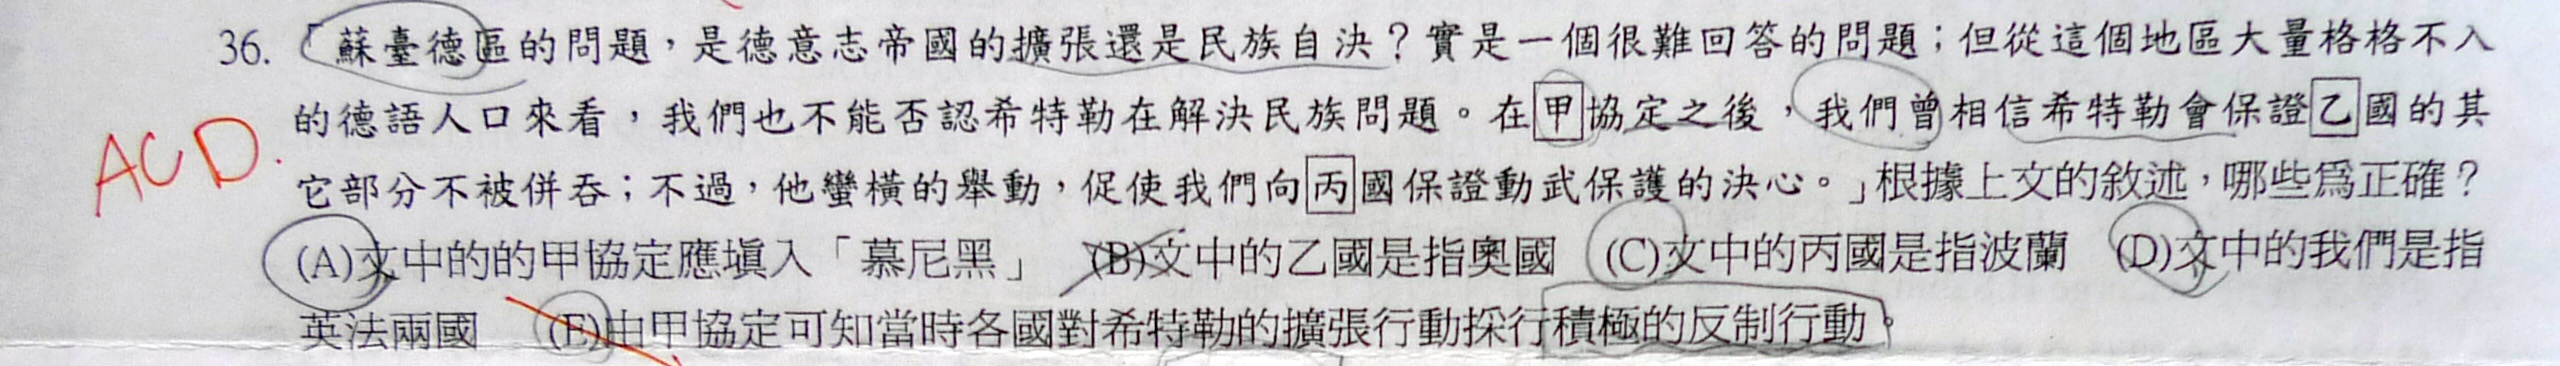 36.「蘇臺德區的問題，是德意志帝國的擴張還是民族自決？實是一個很難回答的問題；但從這個地區大量格格不入
的德語人口來看，我們也不能否認希特勒在解決民族問題。在甲協定之後，我們曾相信希特勒會保證乙國的其
ACD.
它部分不被併吞；不過，他蠻橫的舉動，促使我們向丙國保證動武保護的決心。」根據上文的敘述，哪些為正確？
(A)文中的的甲協定應填入「慕尼黑」 (B)文中的乙國是指奧國 (C)文中的丙國是指波蘭 (D)文中的我們是指
英法兩國 (E)由甲協定可知當時各國對希特勒的擴張行動採行積極的反制行動。